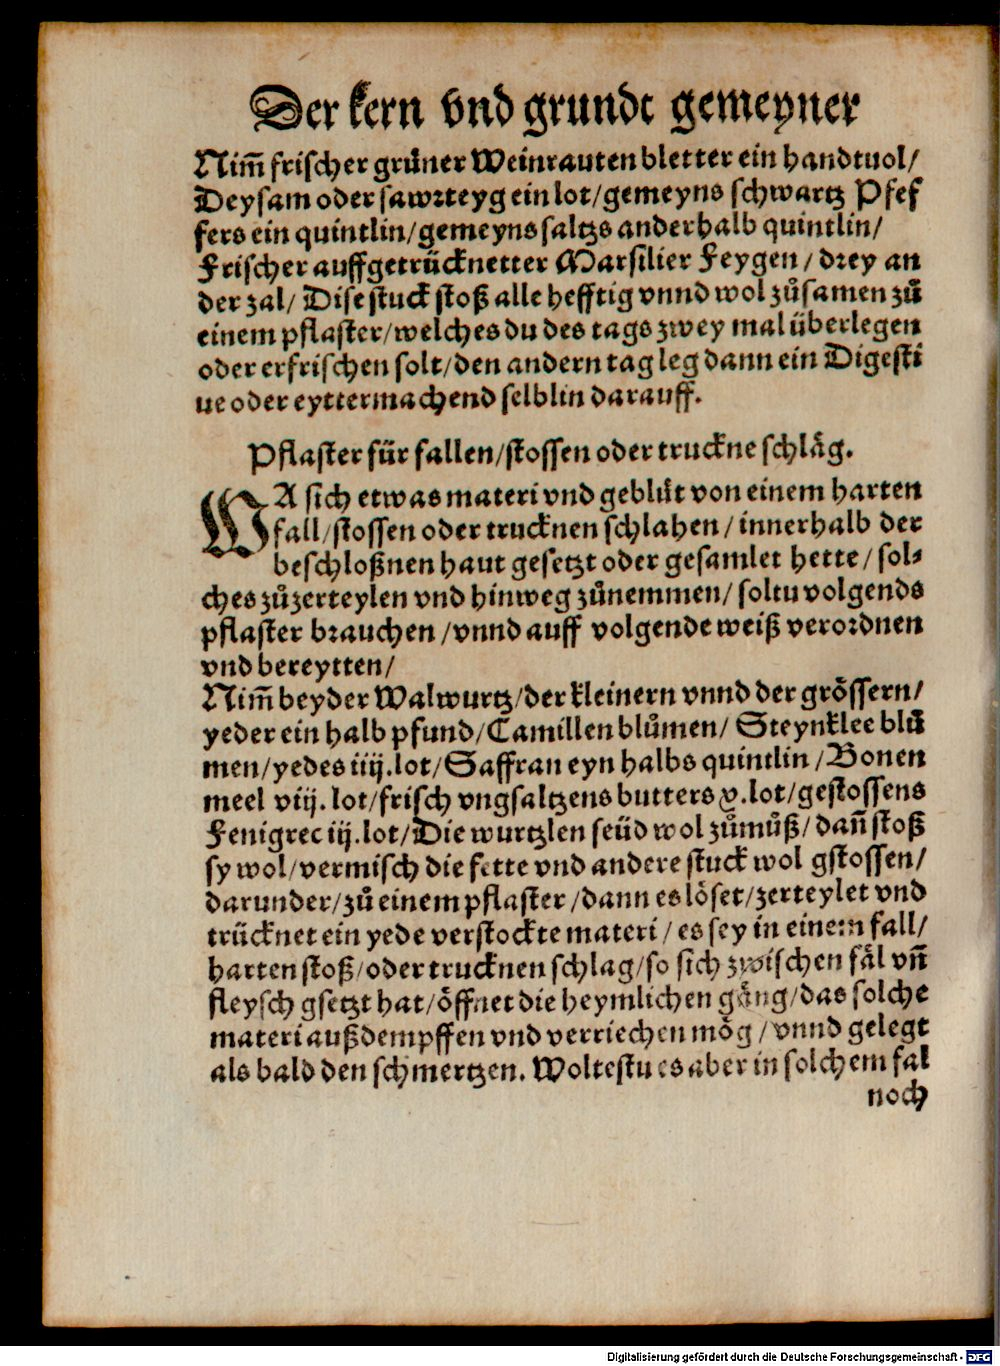 Der kern vnd grundt gemeyner
Nim̃ frischer grůner Weinrauten bletter ein handtuol/
Deysam oder sawrteyg ein lot/gemeyns schwartz Pfef
fers ein quintlin/gemeyns saltzs anderhalb quintlin/
Frischer auffgetrücknetter Marsilier Feygen/drey an
der zal/Dise stuck stoß alle hefftig vnnd wol zůsamen zů
einem pflaster/welches du des tags zwey mal überlegen
oder erfrischen solt/den andern tag leg dann ein Digesti
ue oder eyttermachend selblin darauff.
Pflaster für fallen/stossen oder truckne schläg.
WA sich etwas materi vnd geblůt von einem harten
fall/stossen oder trucknen schlahen/innerhalb der
beschloßnen haut gesetzt oder gesamlet hette/sol⸗
ches zůzerteylen vnd hinweg zůnemmen/soltu volgends
pflaster brauchen/vnnd auff volgende weiß verordnen
vnd bereytten/
Nim̃ beyder Walwurtz/der kleinern vnnd der grössern/
yeder ein halb pfund/Camillen blůmen/Steynklee blů
men/yedes iiij.lot/Saffran eyn halbs quintlin/Bonen
meel viij.lot/frisch vngsaltzens butters x.lot/gestossens
Fenigrec iij.lot/Die wurtzlen seüd wol zů můß/dañ stoß
sy wol/vermisch die fette vnd andere stuck wol gstossen/
darunder/zů einem pflaster/dann es löset/zerteylet vnd
trücknet ein yede verstockte materi/es sey in einem fall/
harten stoß/oder trucknen schlag/so sich zwischen fäl vñ
fleysch gsetzt hat/öffnet die heymlichen gäng/das solche
materi außdempffen vnd verriechen mög/vnnd gelegt
als bald den schmertzen. Woltestu es aber in solchem fal
noch
Digitalisierung gefördert durch die Deutsche Forschungsgemeinschaft - DFG